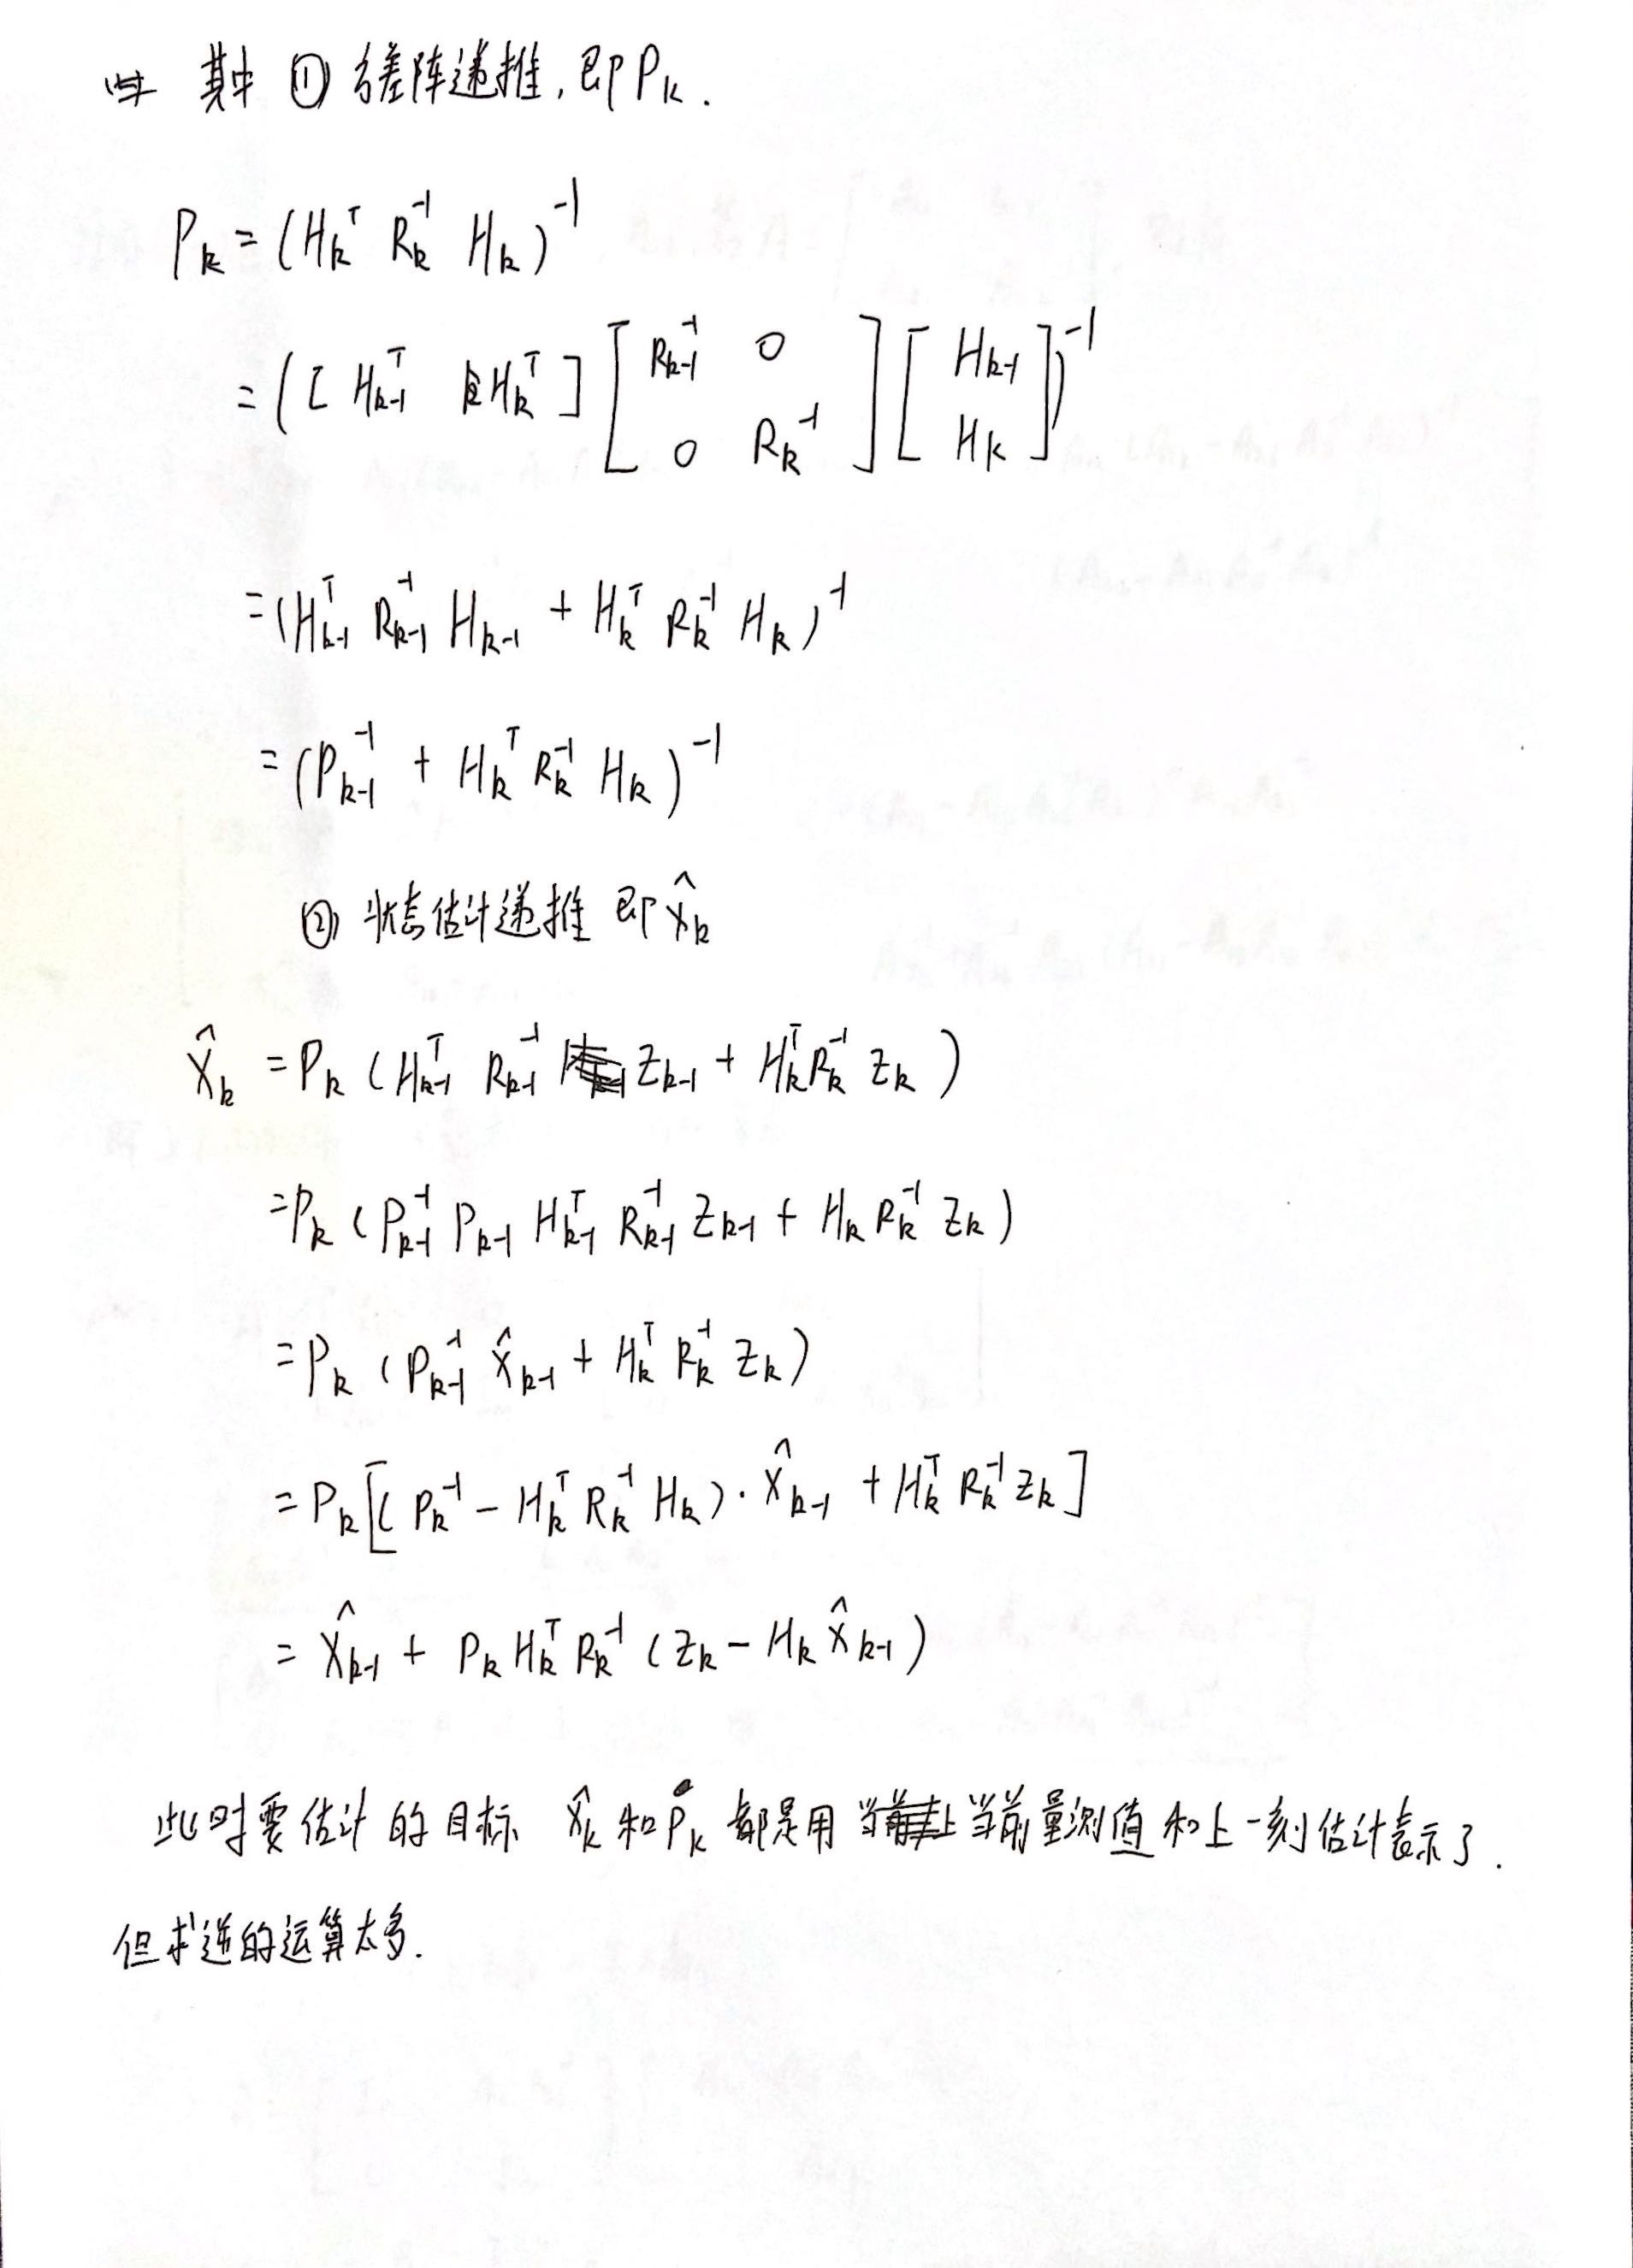 其中 ① 方差阵递推,即 P_k.
P_k = (H_k^T R_k^{-1} H_k)^{-1}
= ([ H_{k-1}^T H_k^T ] [ R_{k-1}^{-1} 0 ; 0 R_k^{-1} ] [ H_{k-1} ; H_k ])^{-1}
= (H_{k-1}^T R_{k-1}^{-1} H_{k-1} + H_k^T R_k^{-1} H_k)^{-1}
= (P_{k-1}^{-1} + H_k^T R_k^{-1} H_k)^{-1}
② 状态估计递推 即 x̂_k
X̂_k = P_k (H_{k-1}^T R_{k-1}^{-1} Z_{k-1} + H_k^T R_k^{-1} Z_k)
= P_k (P_{k-1}^{-1} P_{k-1} H_{k-1}^T R_{k-1}^{-1} Z_{k-1} + H_k R_k^{-1} Z_k)
= P_k (P_{k-1}^{-1} X̂_{k-1} + H_k^T R_k^{-1} Z_k)
= P_k [(P_k^{-1} - H_k^T R_k^{-1} H_k) · X̂_{k-1} + H_k^T R_k^{-1} Z_k]
= X̂_{k-1} + P_k H_k^T R_k^{-1} (Z_k - H_k X̂_{k-1})
此时要估计的目标 X̂_k 和 P_k 都是用 当前量测值和上一刻估计表示了.
但求逆的运算太多.